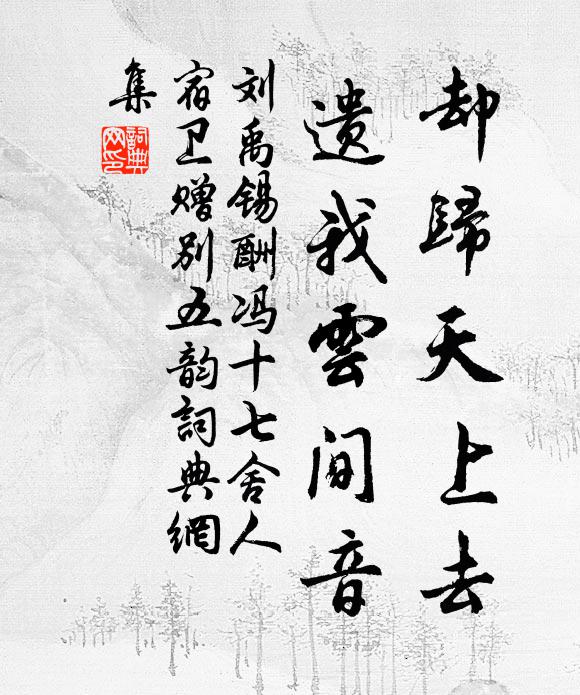 却歸天上去
遺我雲間音
刘禹锡酬冯十七舍人
宿卫赠别五韵詞典網
集
詞典
网印